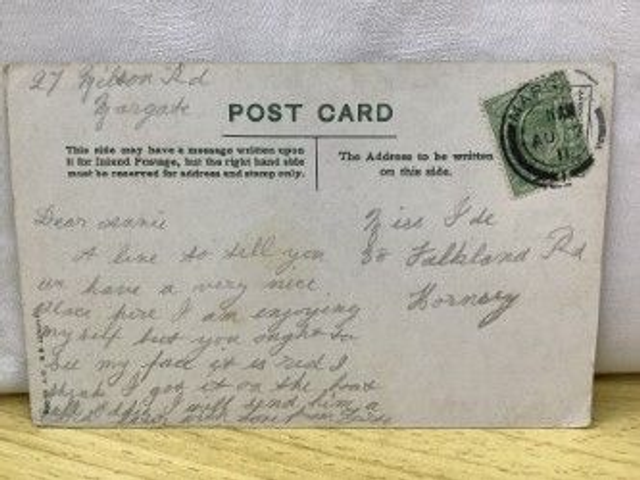 27 Nelson Rd
Margate
POST CARD
This side may have a message written upon
it for Inland Postage, but the right hand side
must be reserved for address and stamp only.
The Address to be written
on this side.
MARG
11 AM
AU
11
Dear Annie
A line to tell you
we have a very nice
place here I am enjoying
myself but you ought to
see my face it is red I
think I got it on the boat
tell I will send him a
card with love from
Miss Ide
80 Falkland Rd
Hornsey